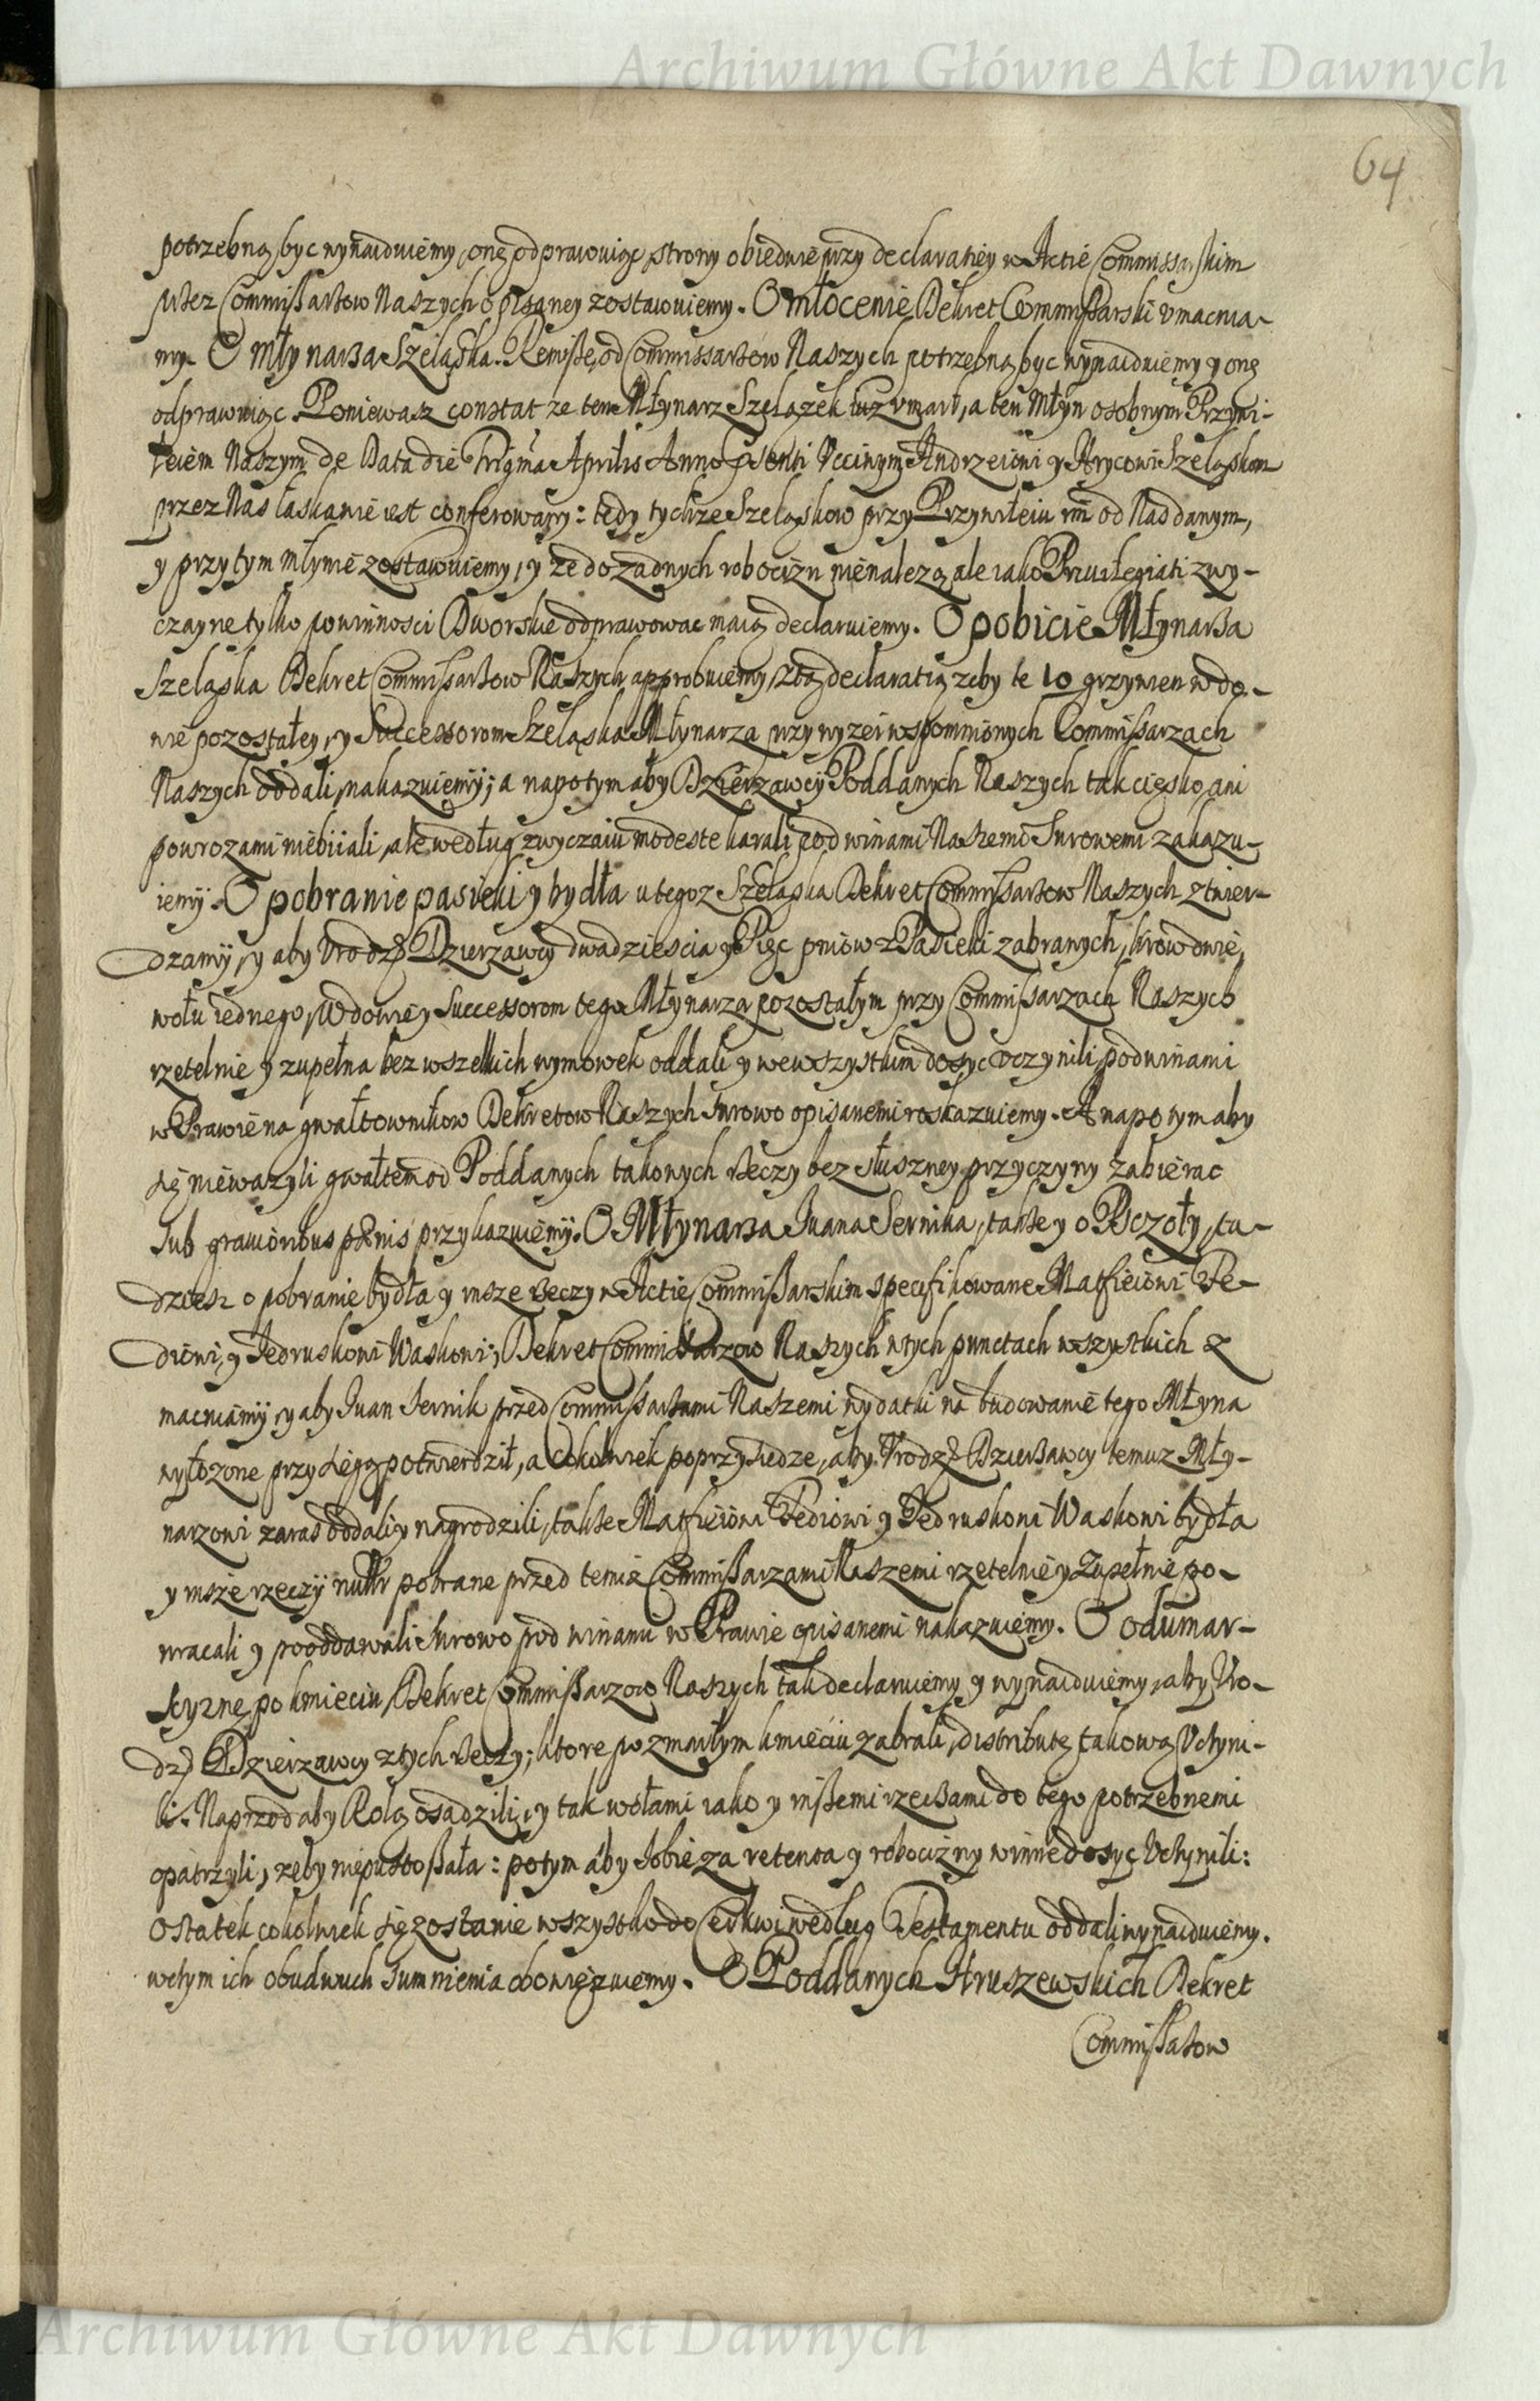 Archiwum Główne Akt Dawnych
64
potrzebną byc wynaiduiemy, onę odprawuiąc, strony obiedwie przy declaratiey w Actie Commissarskim
przez Commissarzow Naszych opisaney zostawuiemy. O młocenie Dekret Commissarski vmacnia-
my. O Młynarza Szeląska. Remissę, od Commissarzow Naszych potrzebną byc wynaiduiemy y onę
odprawuiąc Poniewasz constat ze ten Młynarz Szelązek iuz vmarł, a ten Młyn osobnym Przywi-
leiem Naszym de Data die Trigma Aprilis Anno psenti Vccinym Andrzeiowi y Hrycowi Szeląskom
przez Nas łaskawie iest conferowany: tedy tychze Szeląskow przy Przywileiu im od Nas danym,
y przy tym młynie zostawuiemy, y ze do zadnych robocizn nienalezą ale iako Priuilegiati zwy-
czayne tylko powinnosci Dworskie odprawowac maią declaruiemy. O pobicie Młynarza
Szeląska Dekret Commissarzow Naszych approbuiemy, z tą declaratią zeby te 10 grzywien wdo-
wie pozostałey, y Successorom Szeląska Młynarza przy wyzei wspomnionych Commissarzach
Naszych oddali, nakazuiemy; a napotym aby Dzierzawcy Poddanych Naszych tak cięsko, ani
powrozami niebiiali, ale według zwyczaiu modeste karali pod winami Naszemi Surowemi zakazu-
iemy. O pobranie pasieki y bydła u tegoz Szeląska Dekret Commissarzow Naszych ztwier-
dzamy, y aby Vrodz. Dzierzawcy dwadziescia y Pięc pniow z Pasieki zabranych, krow dwie,
wołu iednego, Wdowie y Successorom tego Młynarza pozostałym przy Commissarzach Naszych
rzetelnie y zupełna bez wszelkich wymowek oddali y we wszystkim dosyc vczynili, pod winami
w Prawie na gwałtownikow Dekretow Naszych surowo opisanemi roskazuiemy. A napotym aby
się niewazyli gwałtem od Poddanych takowych rzeczy bez słuszney przyczyny zabierac
sub grauioribus pænis przykazuiemy. O Młynarza Iuana Sernika, takze y o Psczoły, tu-
dziesz o pobranie bydła y insze rzeczy w Actie Commissarskim specifikowane Matfieiowi Fe-
diowi, y Iedruskowi Waskowi; Dekret Commissarzow Naszych w tych punctach wszystkich z
macniamy, y aby Iuan Sernik przed Commissarzami Naszemi wydatki na budowanie tego Młyna
wyłozone przysięgą potwierdził, a cokolwiek poprzysiedze, aby Vrodz. Dzierzawcy temuz Mły-
narzowi zaras oddali y nagrodzili, takze Matfieiowi Fediowi y Iedruskowi Waskowi bydła
y insze rzeczy pobrane przed temiz Commissarzami Naszemi rzetelnie y zupełnie po-
wracali y pooddawali surowo pod winami w Prawie opisanemi nakazuiemy. O odumar-
sczyznę po kmieciu, Dekret Commissarzow Naszych tak declaruiemy y wynaiduiemy, aby Vro-
dz. Dzierzawcy z tych rzeczy, ktore po zmarłym kmieciu zabrali, distributę takową Vczyni-
li. Naprzod aby Rolą osadzili, y tak wołami iako y inszemi rzeczami do tego potrzebnemi
opatrzyli, zeby niepustoszała: potym aby sobie za retenta y robocizny winne dosyc Vczynili:
Ostatek cokolwiek się zostanie wszystko do Cerkwi według Testamentu oddali wynaiduiemy.
w czym ich obudwuch sumnienia obowięzuiemy. O Poddanych Hruszewskich Dekret
Commissarzow
Archiwum Główne Akt Dawnych